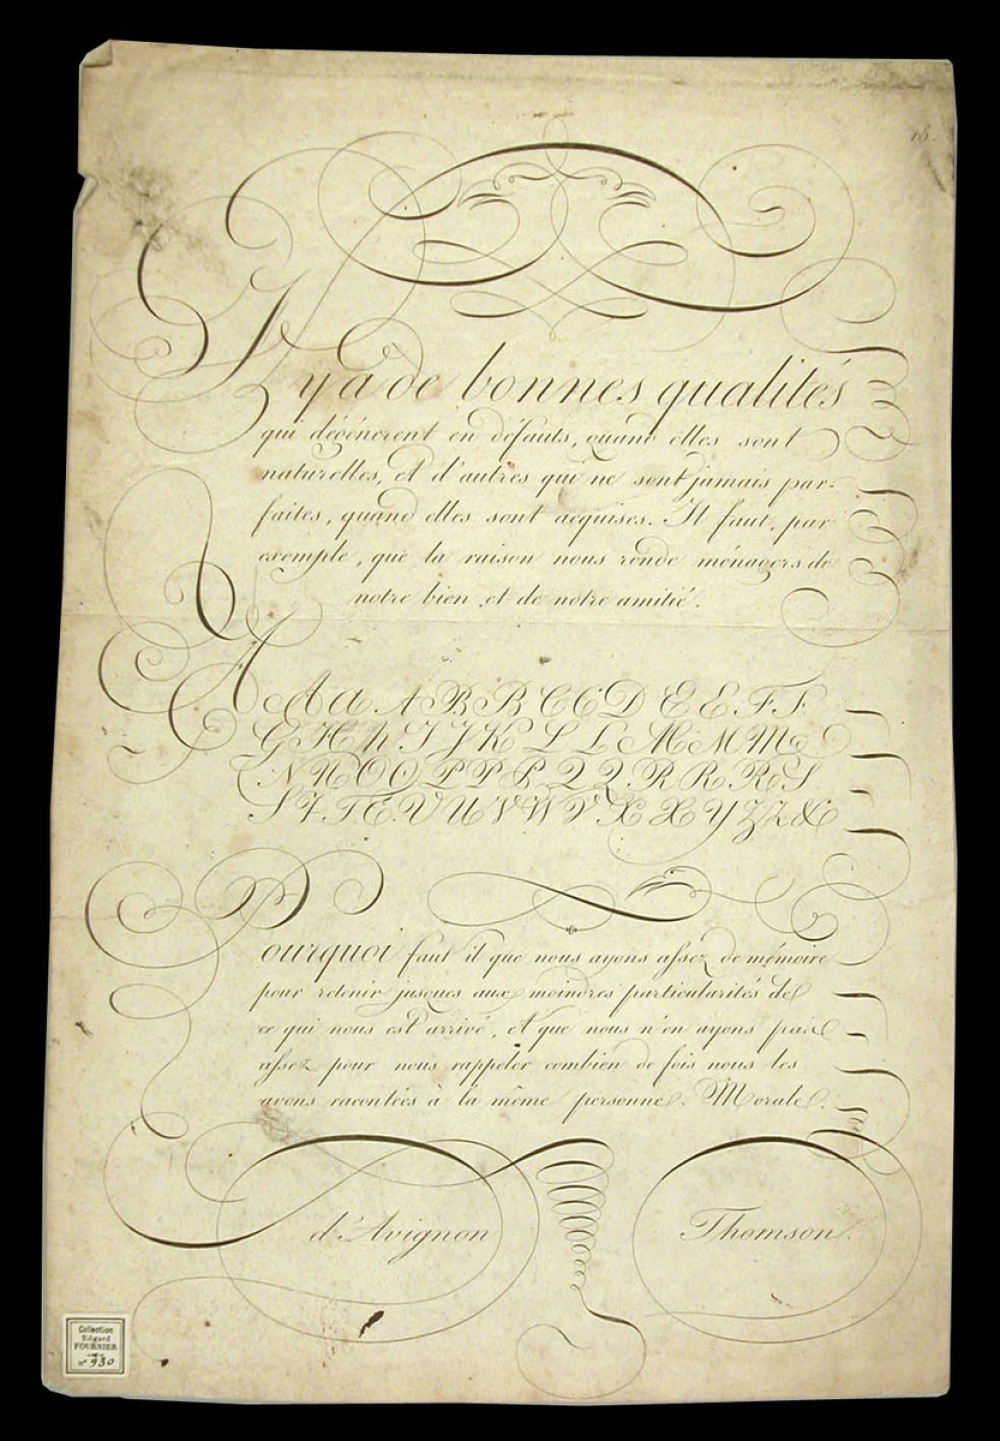 18.
Il y a de bonnes qualités
qui dégénerent en défauts, quand elles sont
naturelles, et d'autres qui ne sont jamais par-
faites, quand elles sont acquises. Il faut, par
exemple, que la raison nous rende ménagers de
notre bien et de notre amitié.
A A a A B B C C D E E F F
G H h I J K L L M M M
N N O O P P P Q Q R R R S
S T T C V U V W V X X Y Z Z &
Pourquoi faut il que nous ayons assez de mémoire
pour retenir jusques aux moindres particularités de
ce qui nous est arrivé, et que nous n'en ayons pas
assez pour nous rappeler combien de fois nous les
avons racontées à la même personne. Morale.
d'Avignon Thomson.
Collection
Edgard
FOURNIER
n° 930